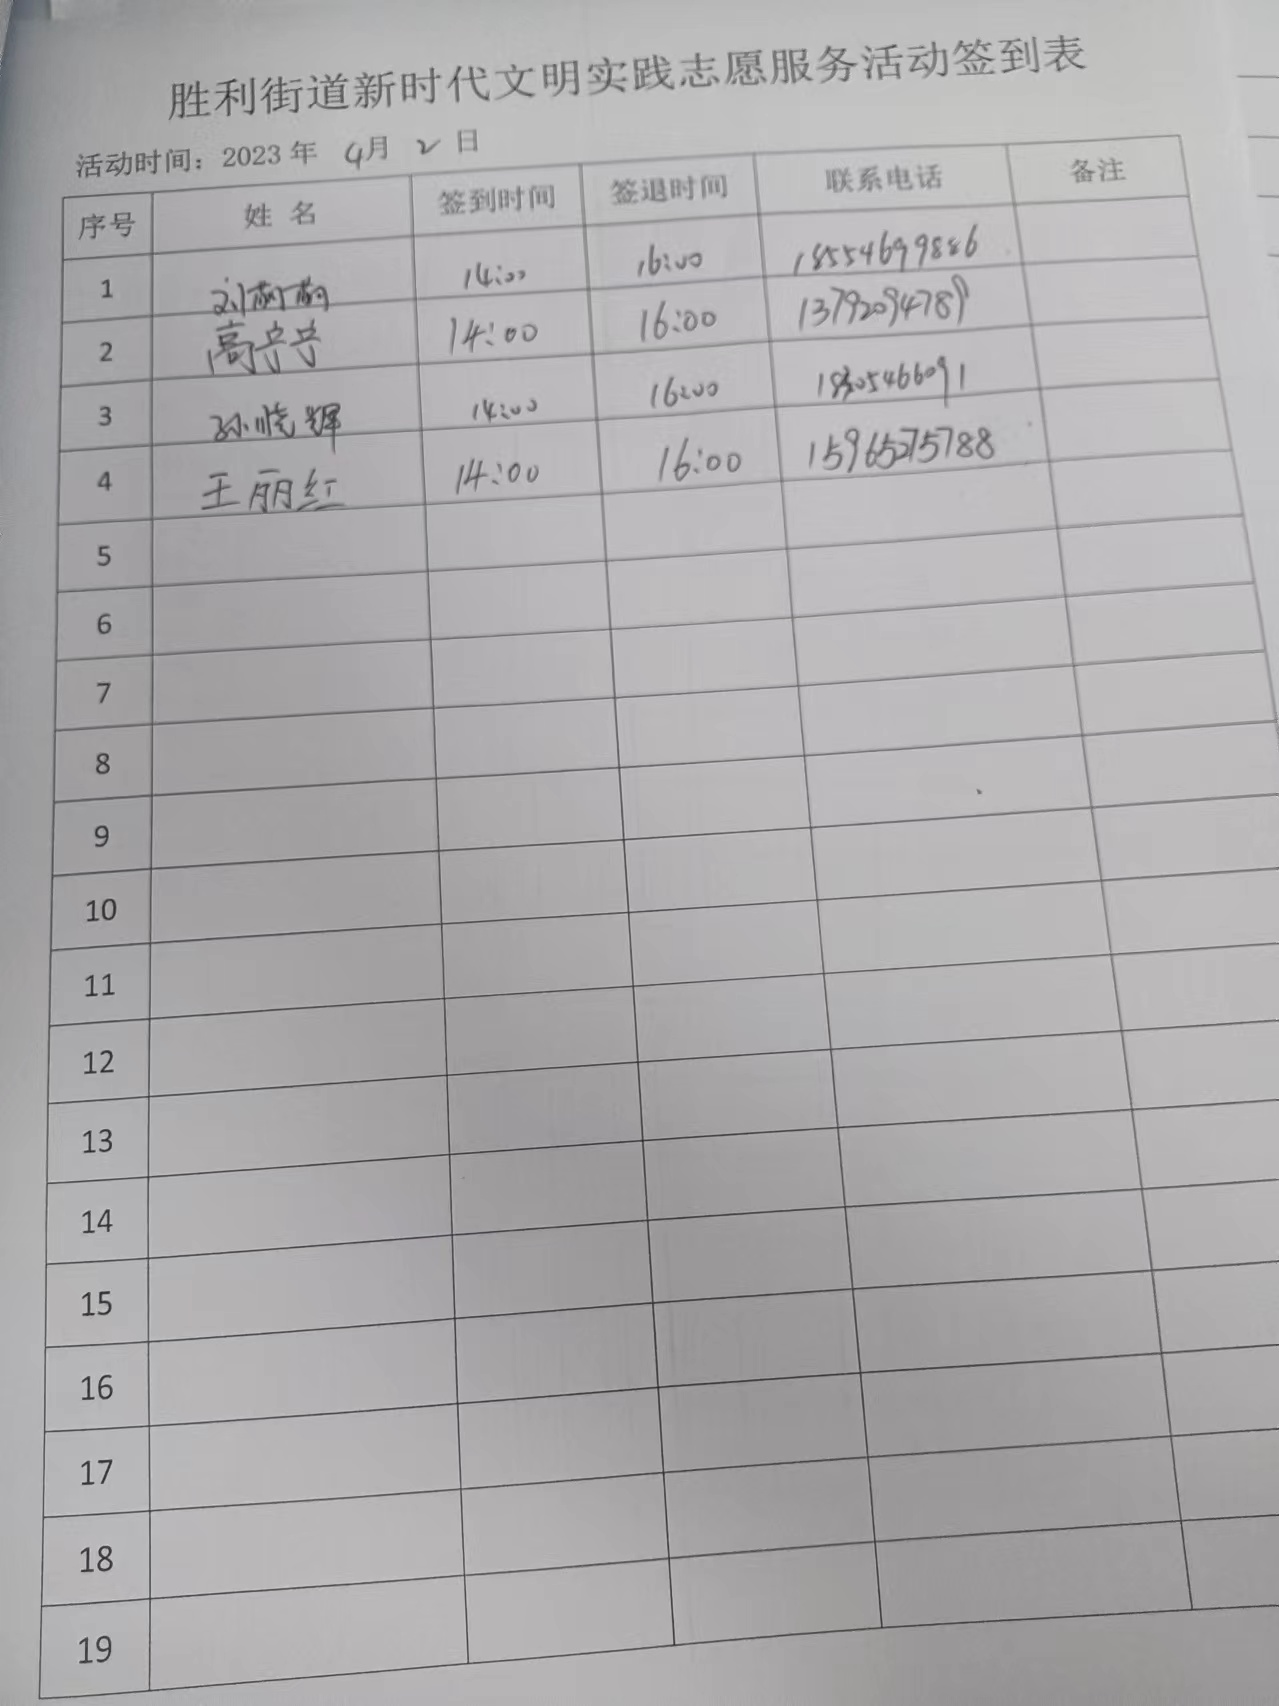 胜利街道新时代文明实践志愿服务活动签到表
活动时间：2023 年 4月 2 日
序号 姓 名 签到时间 签退时间 联系电话 备注
1 刘 14:00 16:00 18554699886
2 高 14:00 16:00 13792094789
3 孙晓辉 14:00 16:00
4 王丽红 14:00 16:00 15965275788
5
6
7
8
9
10
11
12
13
14
15
16
17
18
19